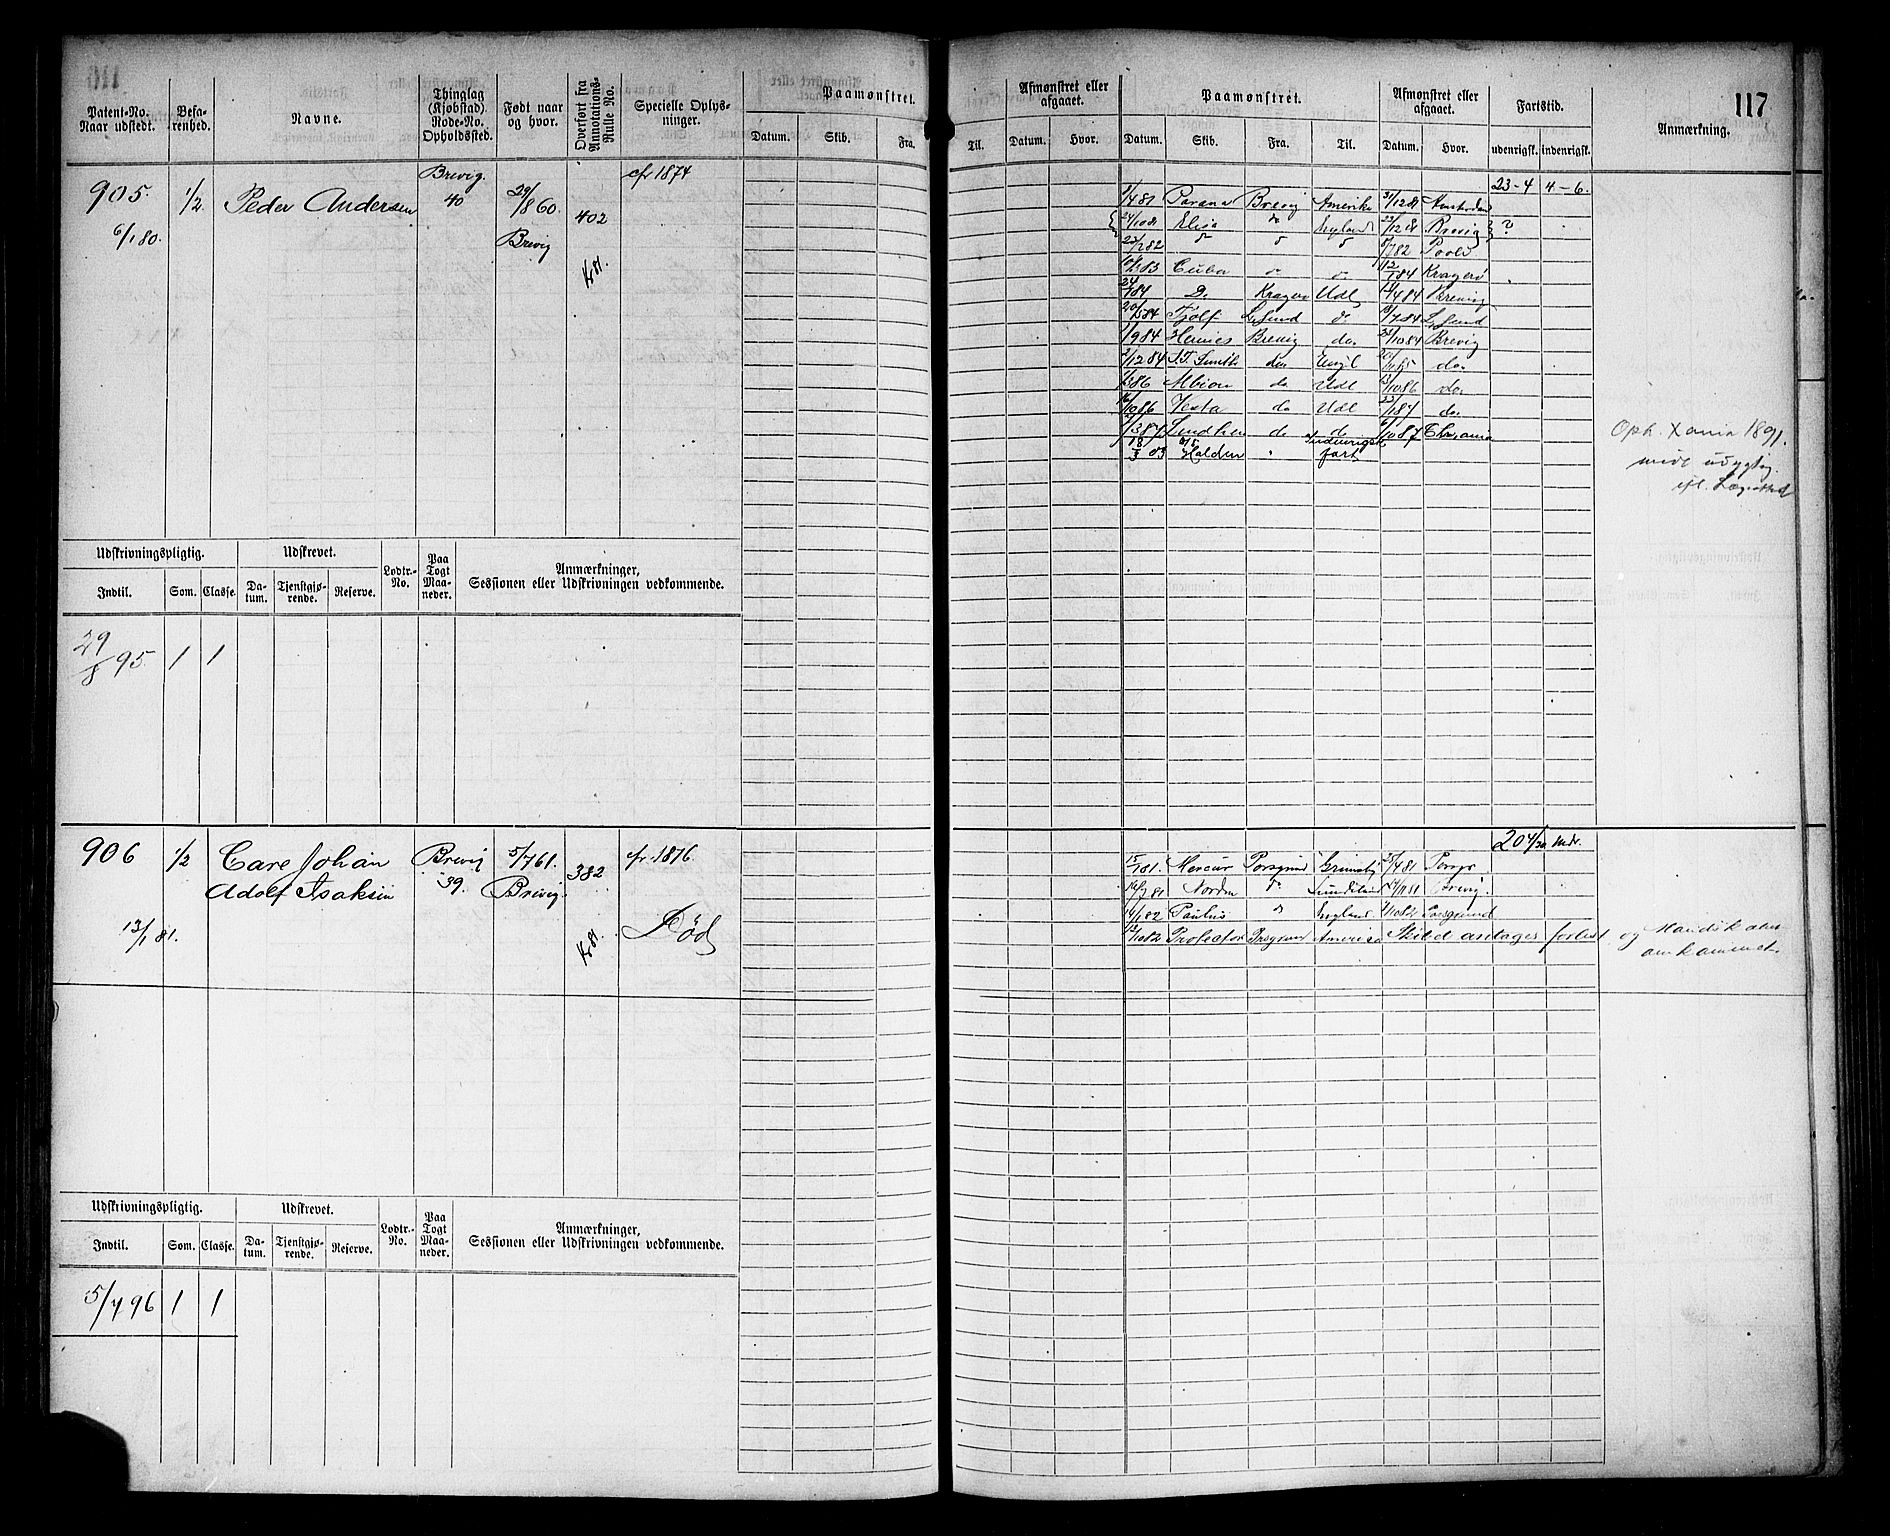 117
Patent-No. Naar udstedt.
Befarenhed.
Navne.
Thinglag (Kjøbstad). Rode-No. Opholdssted.
Født naar og hvor.
Overført fra Annotations-Rulle No.
Specielle Oplysninger.
Paamønstret.
Datum. Skib. Fra. Til.
Afmønstret eller afgaaet.
Datum. Hvor.
Paamønstret.
Datum. Skib. Fra. Til.
Afmønstret eller afgaaet.
Datum. Hvor.
Fartstid.
udenrigsk. indenrigsk.
Anmærkning.
905. 1/2. Peder Andersen Brevig. 40 29/8 60. 402 cfr 1874
6/1 80. Brevig Kr 81.
23-4 4-6.
1/4 81 Parana Brevig Amerika 31/12 81
24/10 81 Elisa do England 22/12 81 Brevig ?
82 Poole
83 Cuba do do 84 Kragerø
84 Do Kragerø Udl 84 Brevig
20/5 84 Tjolf Lsund do 84 Lsund
1/9 84 Hermes Brevig do. 10 84 Brevig
2/12 84 do Engl do.
86 Albion do Udl 10 86 do.
10 86 Vesta do Udl 87 do.
3 87 do do 10 87 Chrania
18/3 03 Halden " Indenrigsk fart
Oph. Xania 1891.
Udskrivningspligtig. Udskrevet. Lodtr.-No. Paa Togt Maaneder. Anmærkninger, Sessionen eller Udskrivningen vedkommende.
Indtil. Som. Classe. Datum. Tjenstgjørende. Reserve.
29/8 95 1 1
906 1/2 Care Johan Brevig 5/7 61. 382 cfr. 1876
Adolf Isaksen 39. Brevig.
13/1 81. Kr 81. Død
204/30 Mdr.
15/ 81. Mercur Porsgrund Grimsby 25/4 81 Porsgr
16/7 81 Norden do 81 Brevig.
14/1 82 Paulus do England 10 82 Porsgrund
12/10 82 Protector Prsgrun America Skibd antages forlist og Mandskabet
omkommet.
Udskrivningspligtig. Udskrevet. Lodtr.-No. Paa Togt Maaneder. Anmærkninger, Sessionen eller Udskrivningen vedkommende.
Indtil. Som. Classe. Datum. Tjenstgjørende. Reserve.
5/7 96 1 1